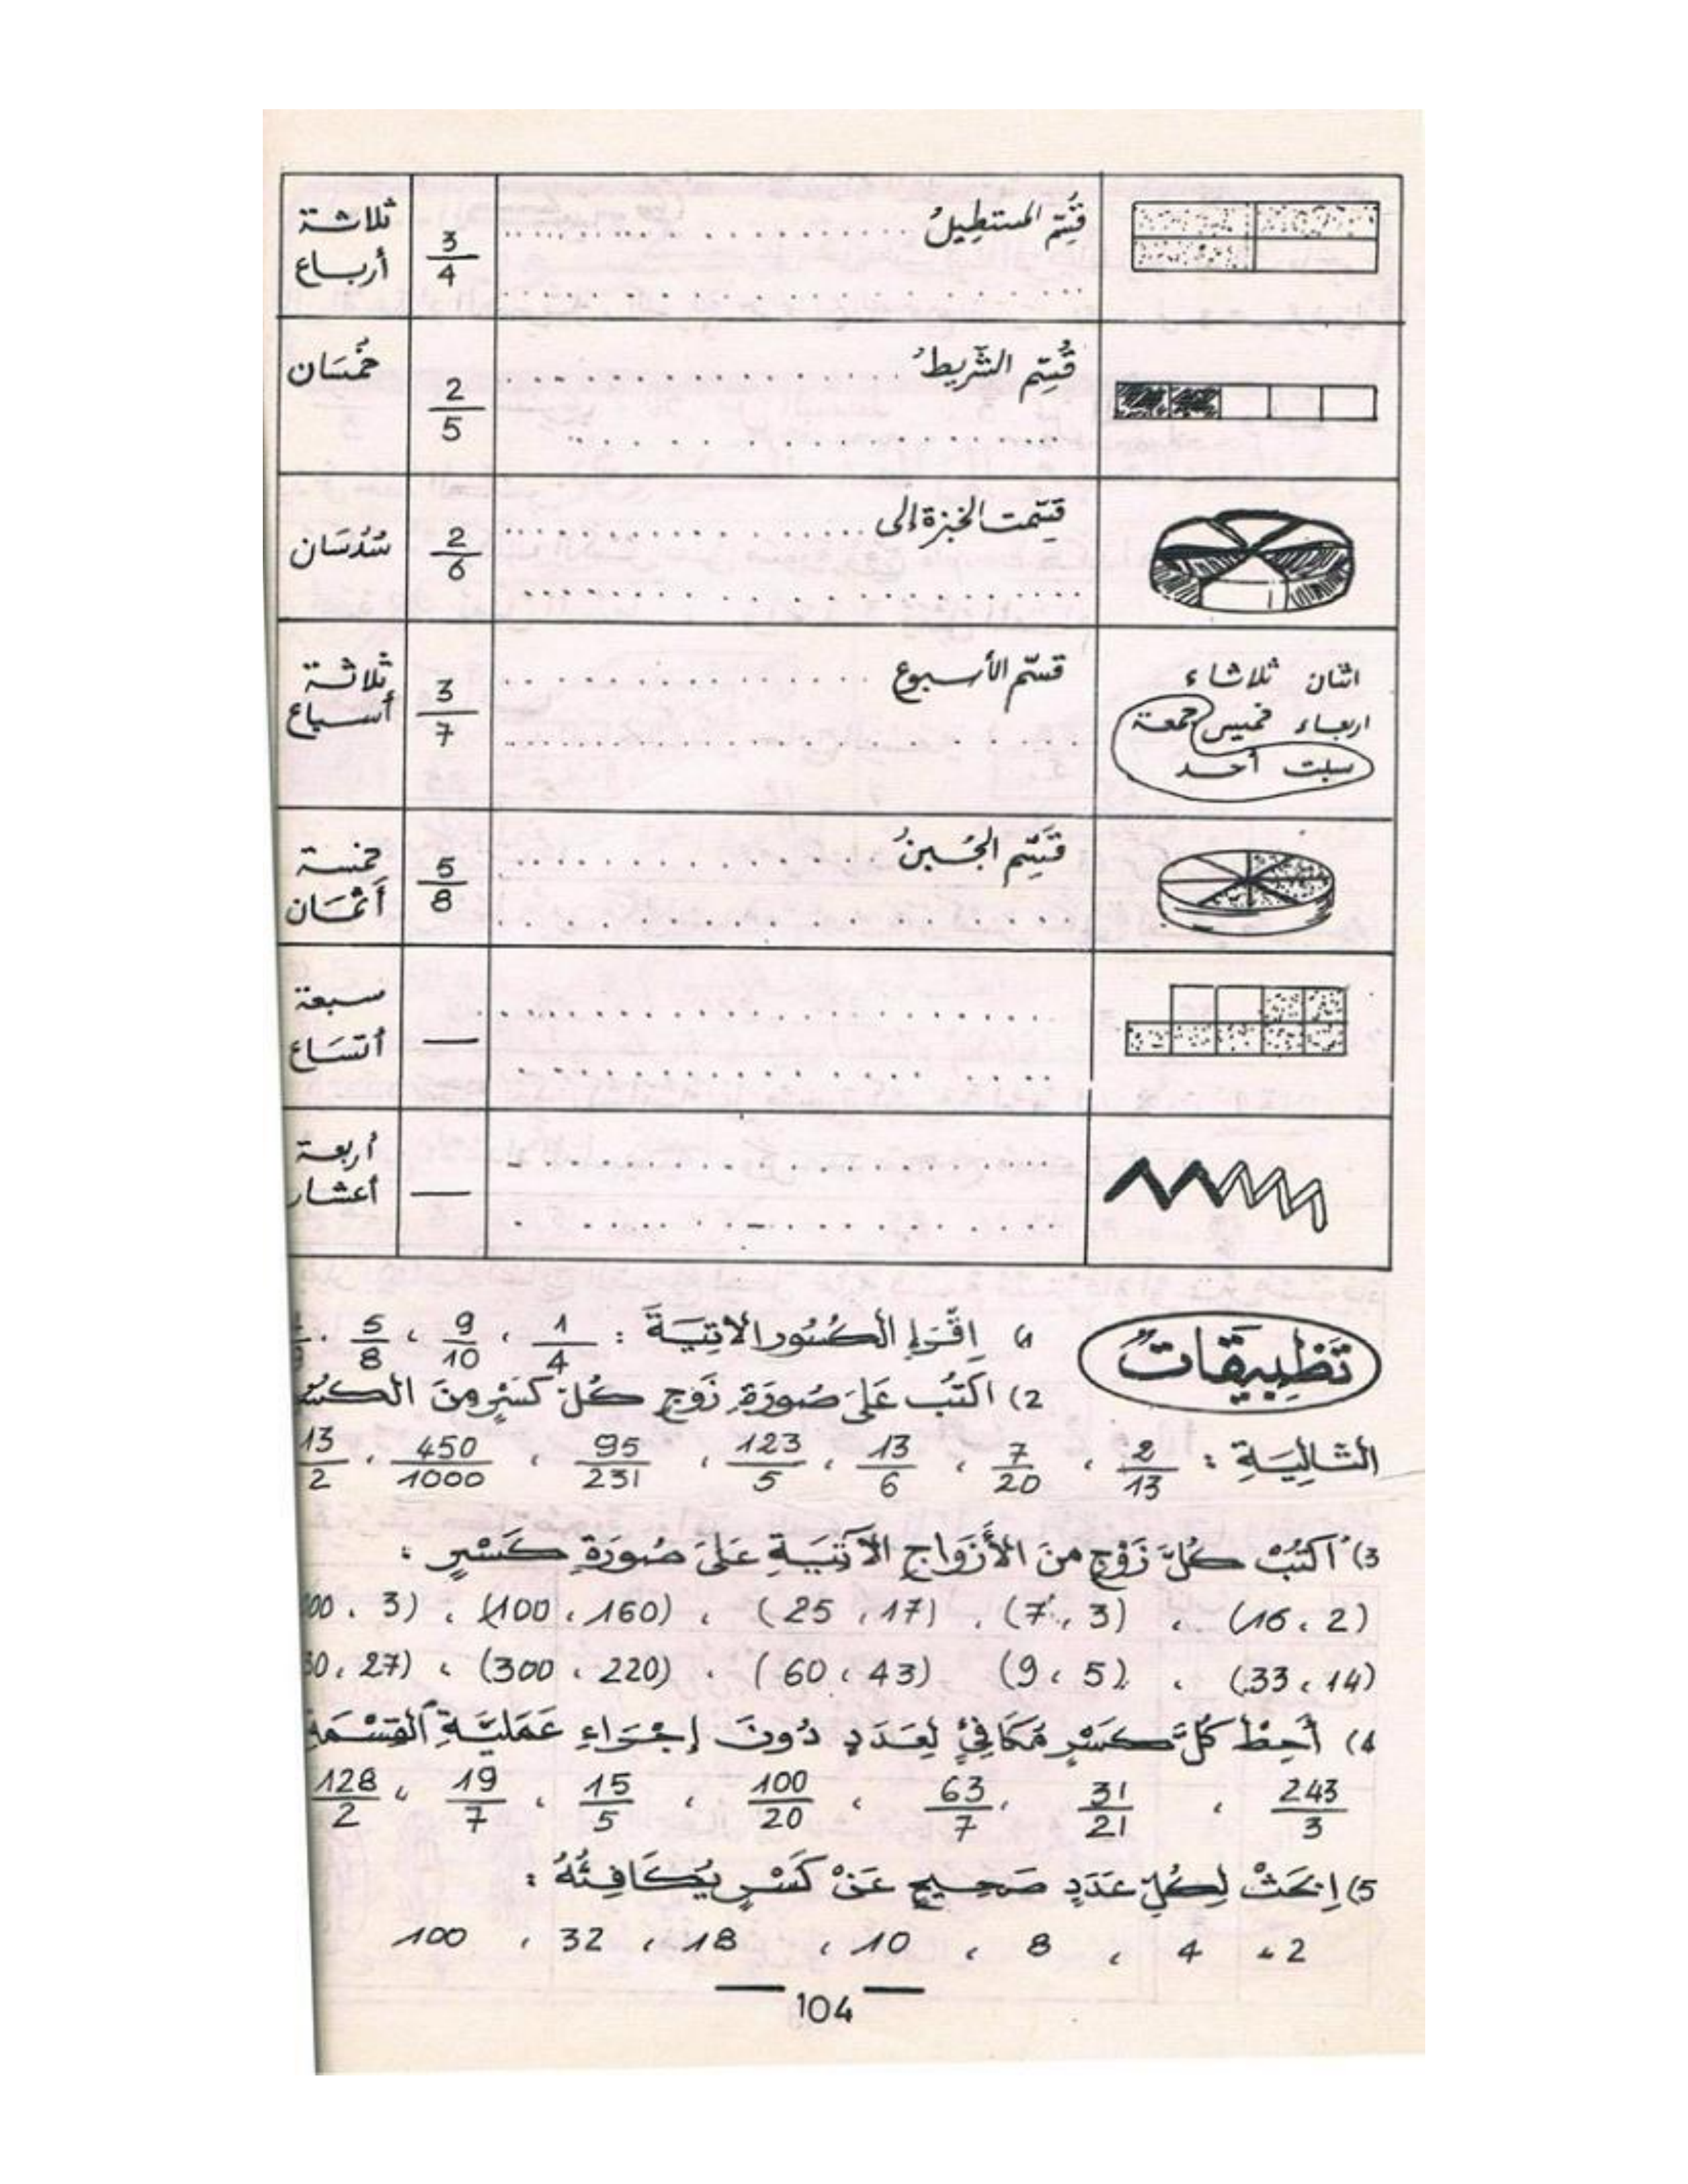 قُسِّم المستطيلُ ....................
3/4
ثلاثة
أرباع
قُسِّم الشّريطُ ....................
2/5
خُمْسَان
قسّمت الخبزة إلى ....................
2/6
سُدُسَان
اثنان ثلاثاء
اربعاء خميس جمعة
سبت أحد
قسّم الأسبوع ....................
3/7
ثلاثة
أسباع
قُسِّم الجُبنُ ....................
5/8
خمسة
أَثْمَان
سبعة
أتسَاع
أربعة
أعشار
تَطْبِيقَاتٌ
1) اِقْرَإِ الكُسُورَ الآتِيَةَ : 1/4 ، 9/10 ، 5/8 .
2) اكْتُب عَلَى صُورَةِ زَوْجٍ كُلّ كَسْرٍ مِنَ الكسُ
التَّالِيَةِ : 2/13 ، 7/20 ، 13/6 ، 123/5 ، 95/231 ، 450/1000 ، 13/2
3) اُكْتُبْ كُلَّ زَوْجٍ مِنَ الأَزْوَاجِ الآتِيَةِ عَلَى صُورَةِ كَسْرٍ :
(16 ، 2) ، (7 ، 3) ، (25 ، 17) ، (100 ، 160) ، 00 ، 3)
(33 ، 14) ، (9 ، 5) (60 ، 43) ، (300 ، 220) ، 30 ، 27)
4) أَحِطْ كُلَّ كَسْرٍ مُكَافِئٍ لِعَدَدٍ دُونَ إِجْرَاءِ عَمَلِيَّةِ القِسْمَةِ
243/3 ، 31/21 ، 63/7 ، 100/20 ، 15/5 ، 19/7 ، 128/2
5) اِبْحَثْ لِكُلِّ عَدَدٍ صَحِيحٍ عَنْ كَسْرٍ يُكَافِئُهُ :
2 ، 4 ، 8 ، 10 ، 18 ، 32 ، 100
104